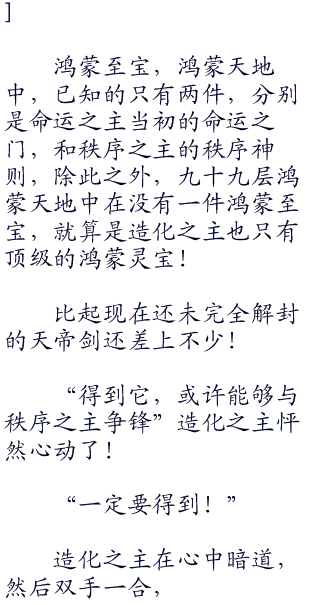 ]
鸿蒙至宝，鸿蒙天地
中，已知的只有两件，分别
是命运之主当初的命运之
门，和秩序之主的秩序神
则，除此之外，九十九层鸿
蒙天地中在没有一件鸿蒙至
宝，就算是造化之主也只有
顶级的鸿蒙灵宝！
比起现在还未完全解封
的天帝剑还差上不少！
“得到它，或许能够与
秩序之主争锋”造化之主怦
然心动了！
“一定要得到！”
造化之主在心中暗道，
然后双手一合，